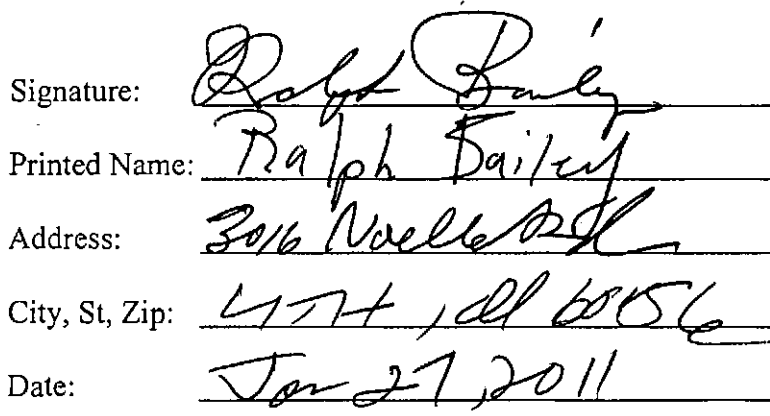 Signature: Ralph Bailey
Printed Name: Ralph Bailey
Address: 3016 Noelle
City, St, Zip: LITH, Ill 60156
Date: Jan 27, 2011